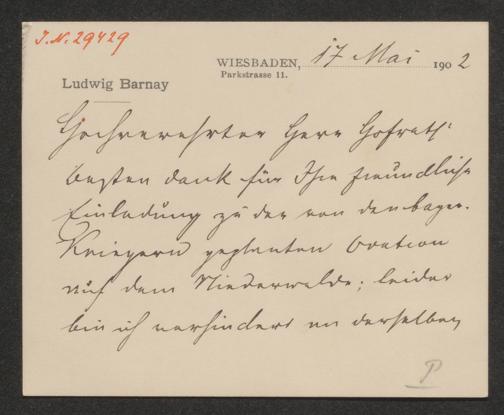 J.N. 29429
WIESBADEN, 17 Mai 1902
Parkstrasse 11.
Ludwig Barnay
Hochverehrter Herr Hofrath!
besten dank für Ihre freundliche
Einladung zu der von den bayer.
Kriegern geplanten Ovation
auf dem Niederwalde; leider
bin ich verhindert an derselben
P